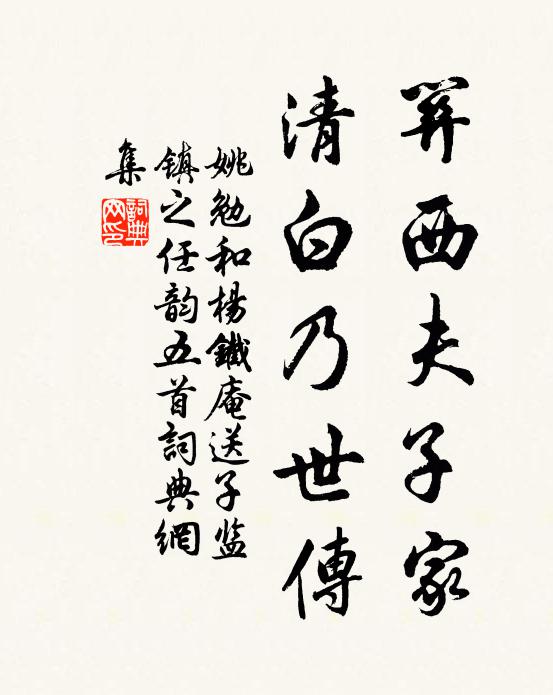 關西夫子家
清白乃世傳
姚勉和楊鐵庵送子监
鎮之任韵五首詞典網
集
詞典
网印